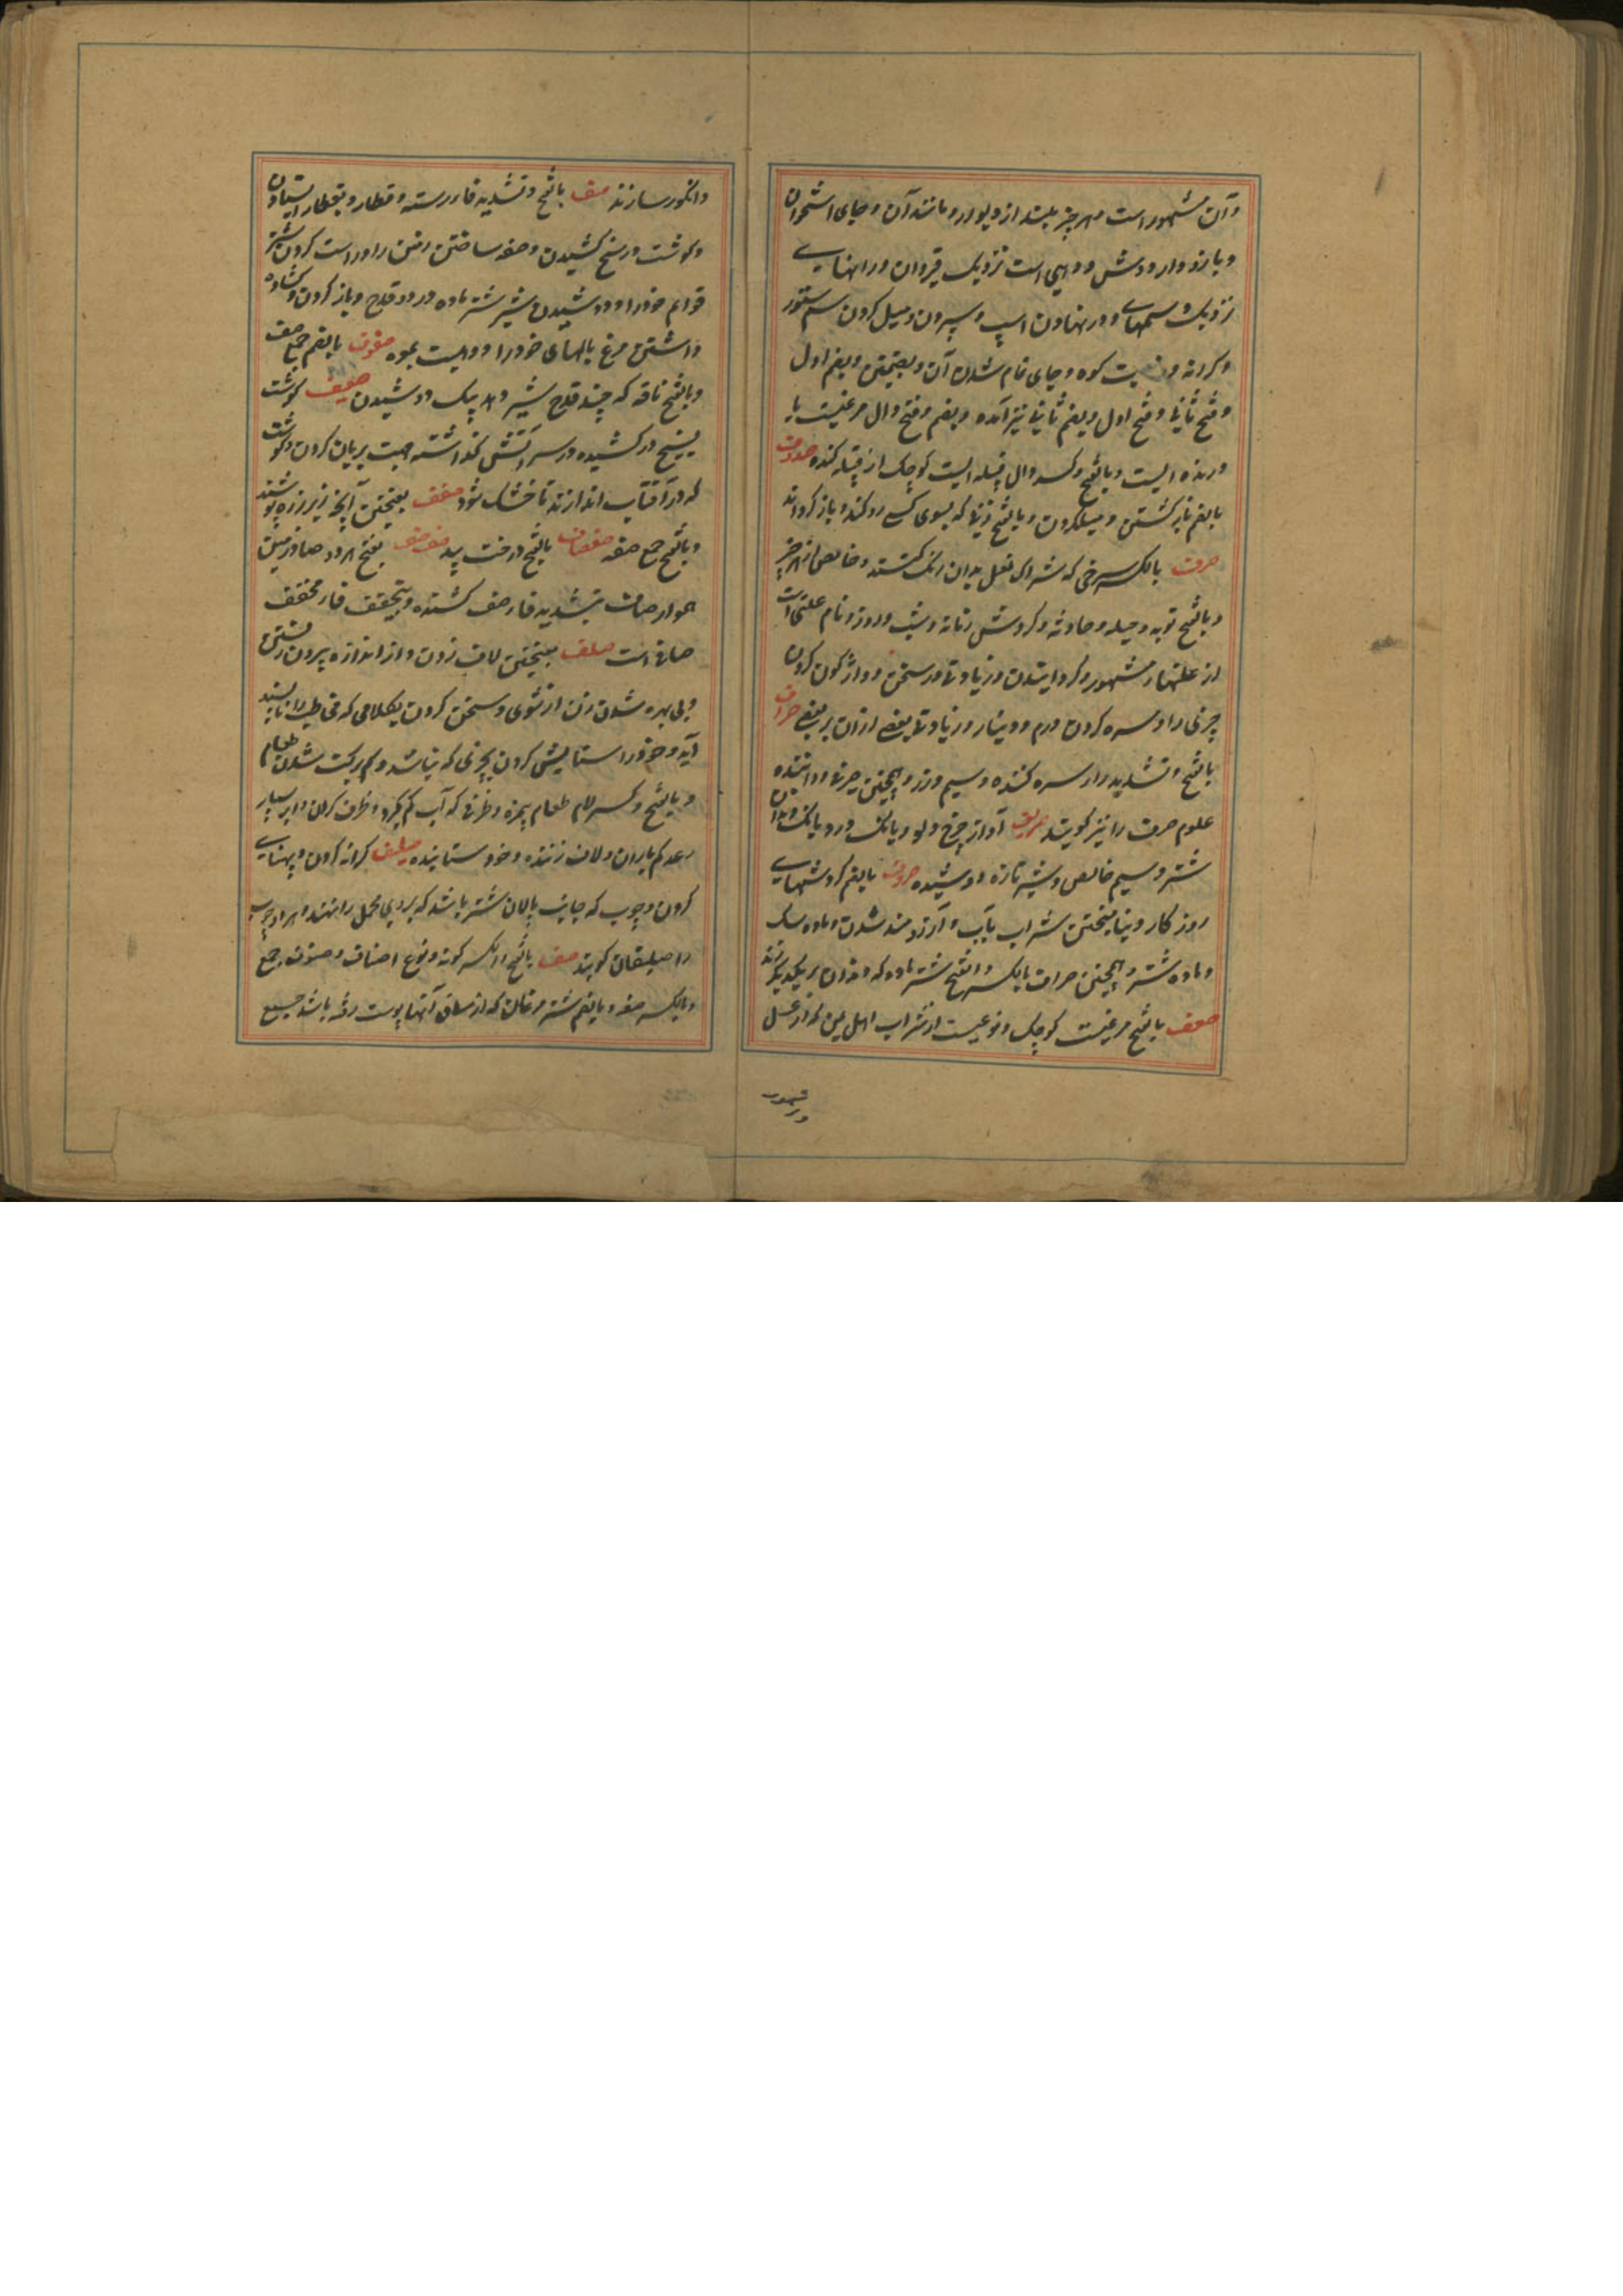 و آن مشهور است و هر چیز بلند از دیوار و مانند آن و جای استخوان
و بازو وارو دش و دهی است نزدیک قیروان و راههای
نزدیک و سمهای و در نهادن اسپ و سپردن و میل کردن سم ستور
و کرانه کوه و جای تمام شدن آن و بضمتین و بضم اول
و فتح ثانی و فتح اول و بضم ثانی نیز آمده و بضم و فتح دال مرغیست یا
درنده ایست و بالفتح و کسر دال قبیله ایست کوچک از قبیله کنده صدوف
بالضم باز گشتن و میلکردن و بالفتح زنی که بسوی کسی رو کند و باز گرداند
صرف بالکسر سرخی که شراک نعل بدان رنگ کنند و خالص از هر چیز
و بالفتح توبه و حیله و حادثه و گردش زمانه و شب و روز و نام علمی است
از علمهای مشهور و گردانیدن و زیادتی در سخن و واژگون کردن
چیزی را و سره کردن درم و دینار و زیادتی بعضی از آن بر بعضی صراف
بالفتح و تشدید را سره کننده و سیم و زر و همچنین صرفی و داننده
علوم صرف را نیز گویند صریف آواز چرخ دلو و بانگ در و بانگ دندان
شتر و سیم خالص و شیر تازه دوشیده صروف بالضم گردشهای
روزگار و نیامیختن شراب بآب و آرزومند شدن ماده سگ
و ماده شتر و همچنین صراف بالکسر و بالفتح شتر ماده که دندان بر یکدیگر زند
صعف بالفتح مرغیست کوچک و نوعیست از شراب اهل یمن که از عسل
و انگور سازند صف بالفتح و تشدید فا رسته و قطار و بقطار ایستادن
و گوشت در سیخ کشیدن و صفه ساختن زین را و راست کردن شتر
قوائم خود را و دوشیدن شیر شتر ماده در دو قدح و باز کردن و گشاده
داشتن مرغ بالهای خود را و دهیست بمره صفوف بالضم جمع صف
و بالفتح ناقه که چند قدح شیر دهد بیک دوشیدن صفیف گوشت
بسیخ در کشیده و در سر آتش گذاشته جهت بریان کردن و گوشت
که در آفتاب اندازند تا خشک شود صفف بفتحتین آنچه زیر زره پوشند
و بالفتح جمع صفه صفصاف بالفتح درخت بید صفصف بفتح هر دو صاد زمین
هموار صاف بتشدید فا صف کشنده و بتخفیف فا مخفف
صافی است صلف بفتحتین لاف زدن و از اندازه بیرون رفتن
و بی بهره شدن زن از شوی و سخن کردن بکلامی که مخاطب را ناپسند
آید و خود را ستایش کردن بچیزی که نباشد و کم برکت شدن طعام
و بالفتح و کسر لام طعام بیمزه و ظرفی که آب کم گیرد و ظرف گران و ابر بسیار
رعد کم باران و لاف زننده و خود ستاینده صلیف کرانه گردن و پهنای
گردن و چوب که جانب پالان شتر باشد که بر وی محمل را بندند و هر دو چوب
را صلیفان گویند صنف بالفتح و الکسر گونه و نوع اصناف و صنوف جمع
و بالکسر صفه و بالضم شتر مرغان که از ساق آنها پوست رفته باشد جمیع